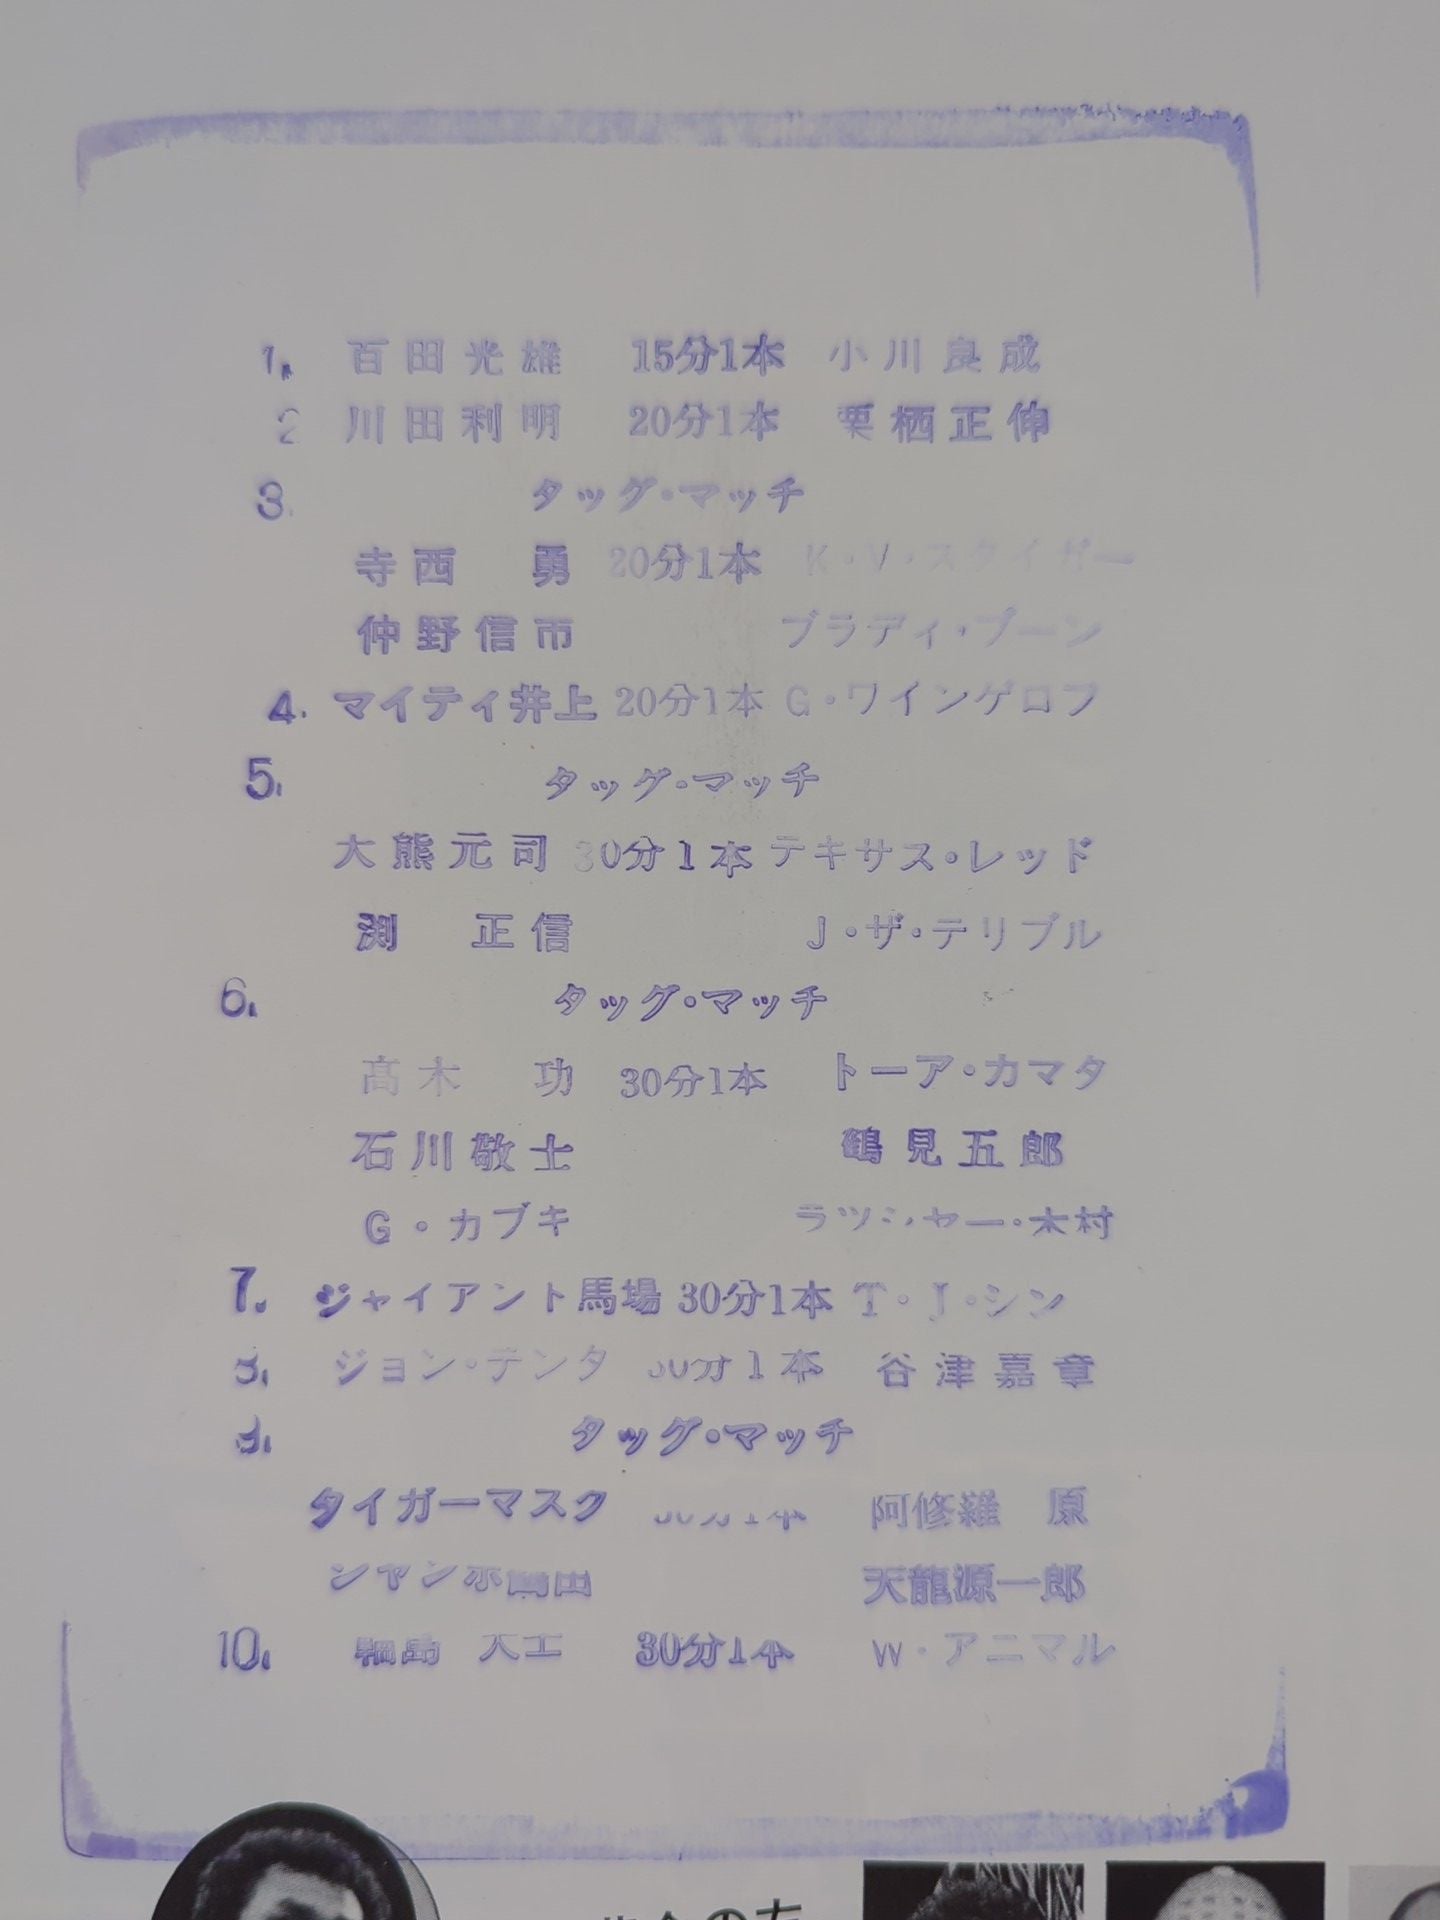 1. 百田光雄 15分1本 小川良成
2 川田利明 20分1本 栗栖正伸
3. タッグ・マッチ
寺西 勇 20分1本 K・V・スタイガー
仲野信市 ブラディ・ブーン
4. マイティ井上 20分1本 G・ワインゲロフ
5. タッグ・マッチ
大熊元司 30分1本 テキサス・レッド
渕 正信 J・ザ・テリブル
6. タッグ・マッチ
高木 功 30分1本 トーア・カマタ
石川敬士 鶴見五郎
G・カブキ ラッシャー・木村
7. ジャイアント馬場 30分1本 T・J・シン
8. ジョン・テンタ 30分1本 谷津嘉章
9. タッグ・マッチ
タイガーマスク 30分1本 阿修羅 原
ジャンボ鶴田 天龍源一郎
10. 輪島 大士 30分1本 W・アニマル